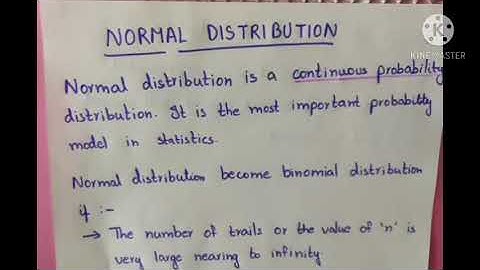 NORMAL DISTRIBUTION
KINEMASTER
Normal distribution is a continuous probability
distribution. It is the most important probability
model in statistics.
Normal distribution become binomial distribution
if :-
→ The number of trails or the value of 'n' is
very large nearing to infinity.